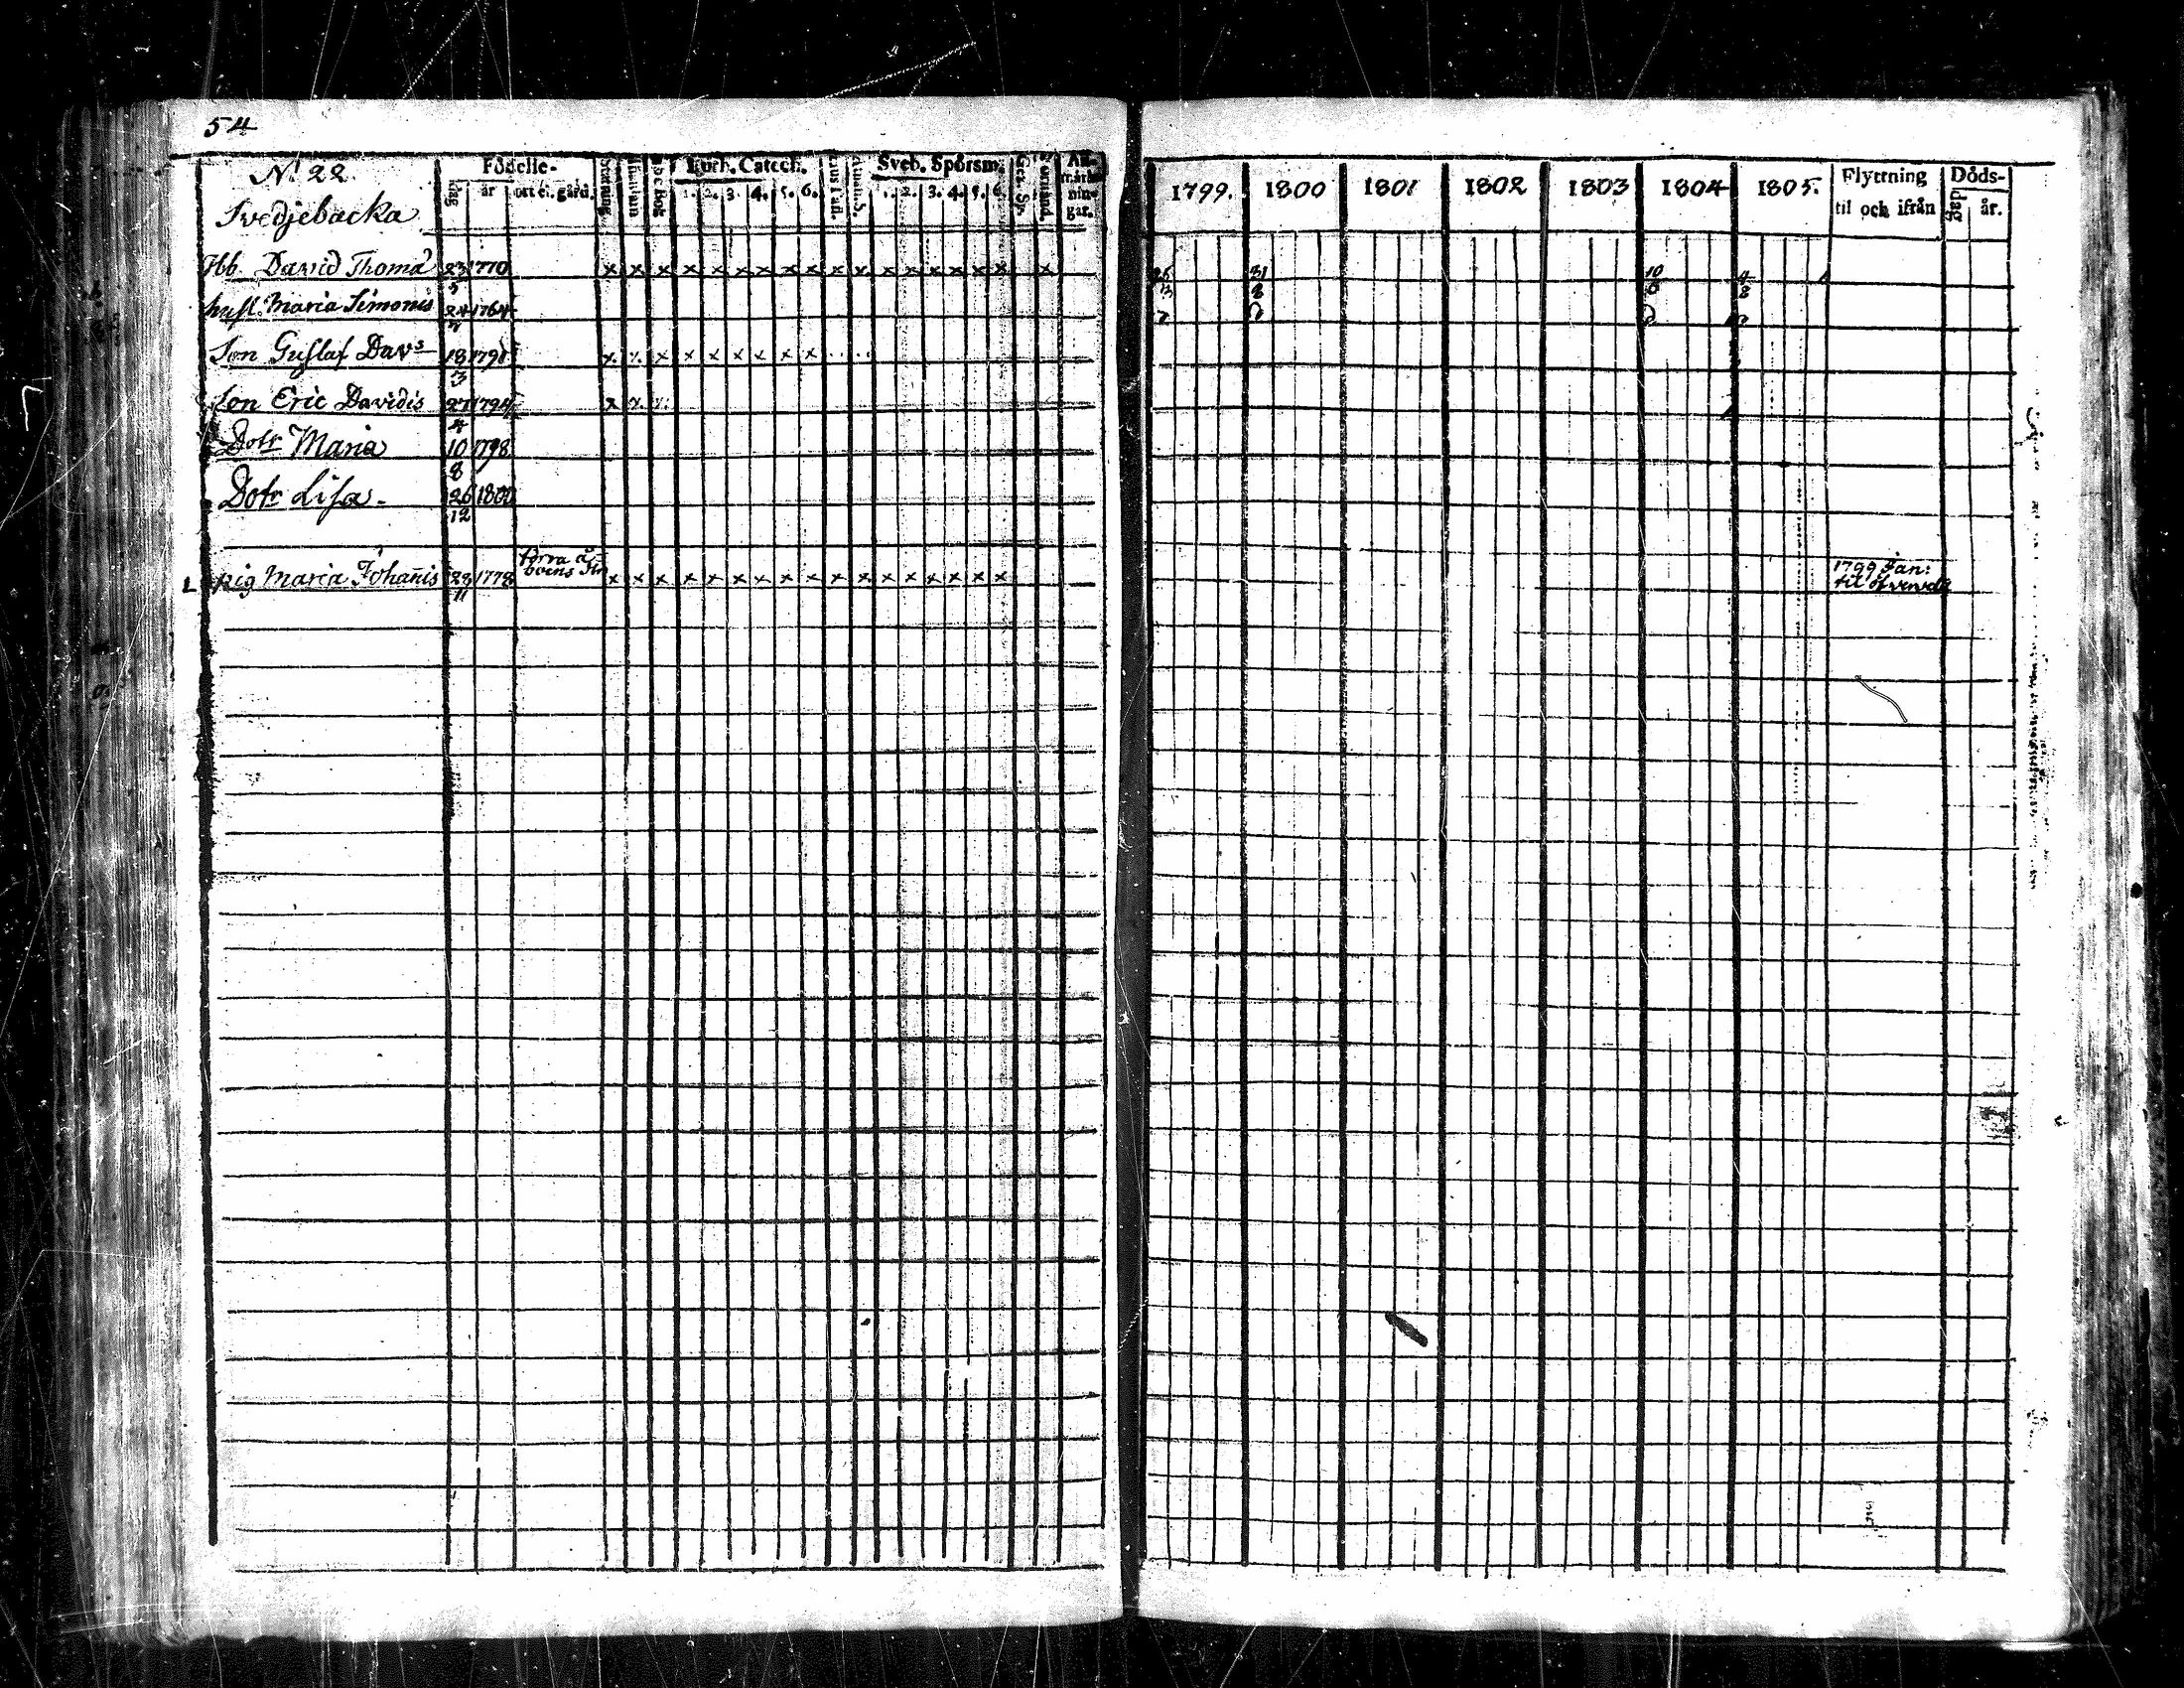 54
N. 22.
Svedjebacka
Födelse-
dag
år
ort el. gård.
Stafning
Abc bok
Luth. Catech.
1. 2. 3. 4. 5. 6.
Sveb. Spörsm.
1. 2. 3. 4. 5. 6.
An-
märk-
nin-
gar.
Hb. David Thomæ 23 1770 x x x x x x x x x x x x x x x x x x
hust. Maria Simonis 24 1764
Son Gustaf Davs 18 1790 x x x x x x x x x
3
Son Eric Davidis 27 1794 x x
4
Dotr Maria 10 1798
8
Dotr Lisa 26 1800
12
L pig Maria Johañis 28 1778 x x x x x x x x x x x x x x x x x
11
1799. 1800 1801 1802 1803 1804 1805.
Flyttning
til och ifrån
Döds-
dag
år.
31
8
10
4
8
1799 Jan:
til